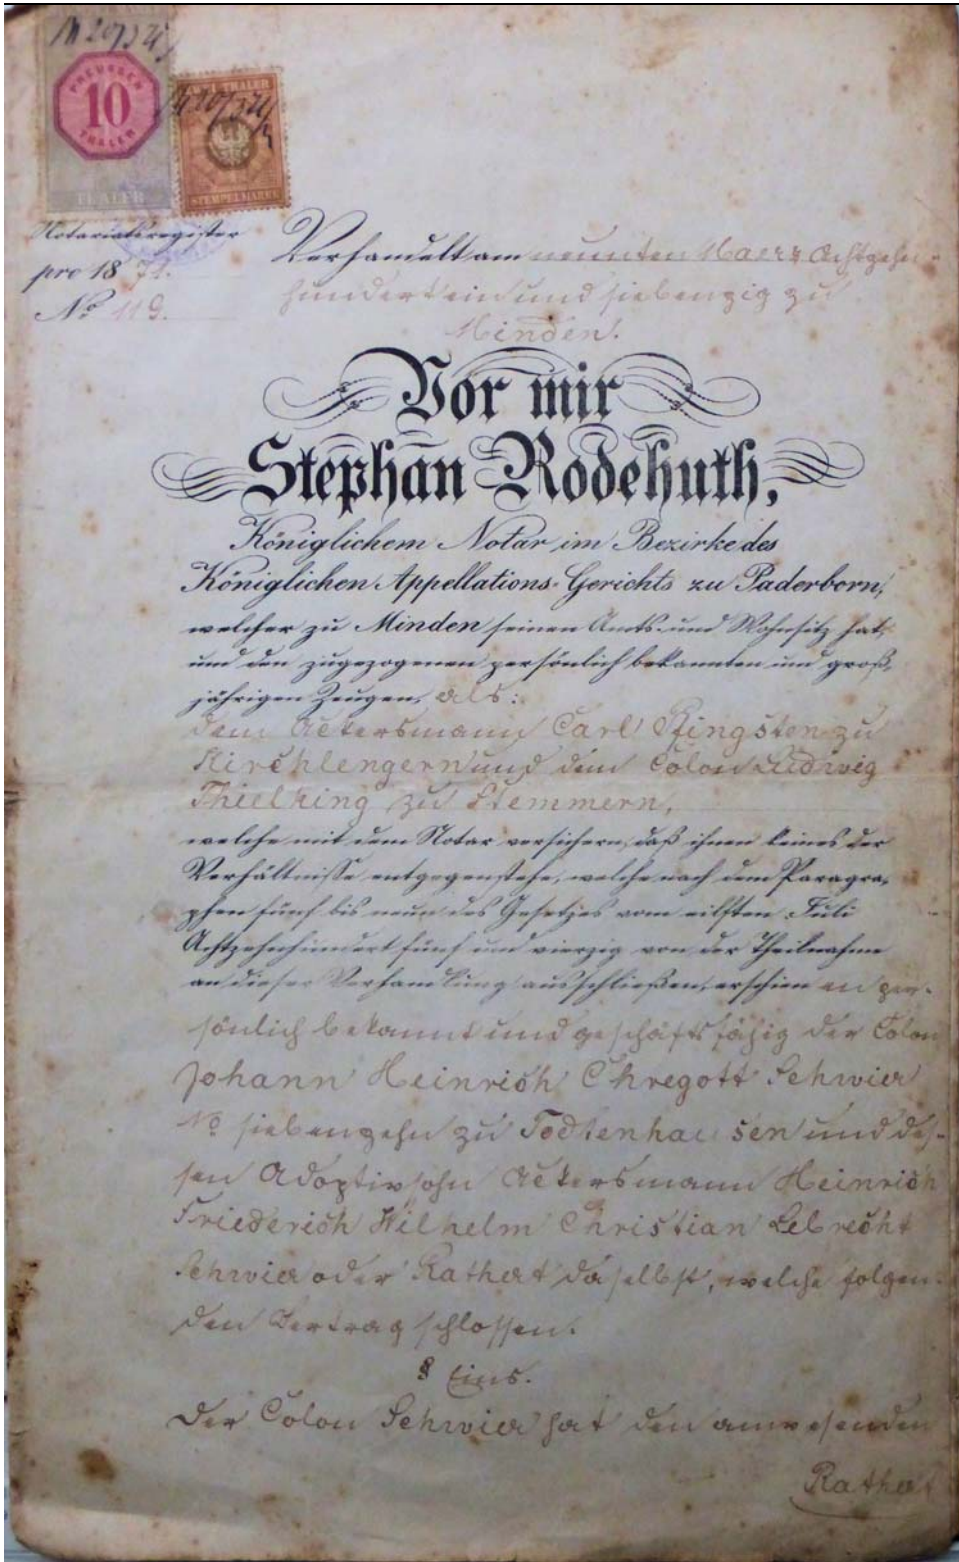 PREUSSEN
10
THALER
THALER
STEMPELMARKE
Notariatsregister
pro 1871.
No 119.
Verhandelt am neunten Maerz Achtzehn-
hundert ein und siebenzig zu
Minden.
Vor mir
Stephan Rodehuth,
Königlichem Notar im Bezirke des
Königlichen Appellations-Gerichts zu Paderborn,
welcher zu Minden seinen Amts- und Wohnsitz hat,
und den zugezogenen persönlich bekannten und groß-
jährigen Zeugen, als:
dem Ackersmann Carl Pfingsten zu
Kirchlengern und dem Colon Ludwig
Thielking zu Stemmern,
welche mit dem Notar versichern, daß ihnen keines der
Verhältnisse entgegenstehe, welche nach dem Paragra-
phen fünf bis neun des Gesetzes vom eilften Juli
Achtzehnhundert fünf und vierzig von der Theilnahme
an dieser Verhandlung ausschließen, erschienen per-
sönlich bekannt und geschäftsfähig der Colon
Johann Heinrich Ehregott Schwier
No siebenzehn zu Todtenhausen und des-
sen Adoptivsohn Ackersmann Heinrich
Friederich Wilhelm Christian Lebrecht
Schwier oder Rathert daselbst, welche folgen-
den Vertrag schlossen.
§ Eins.
Der Colon Schwier hat den anwesenden
Rathert